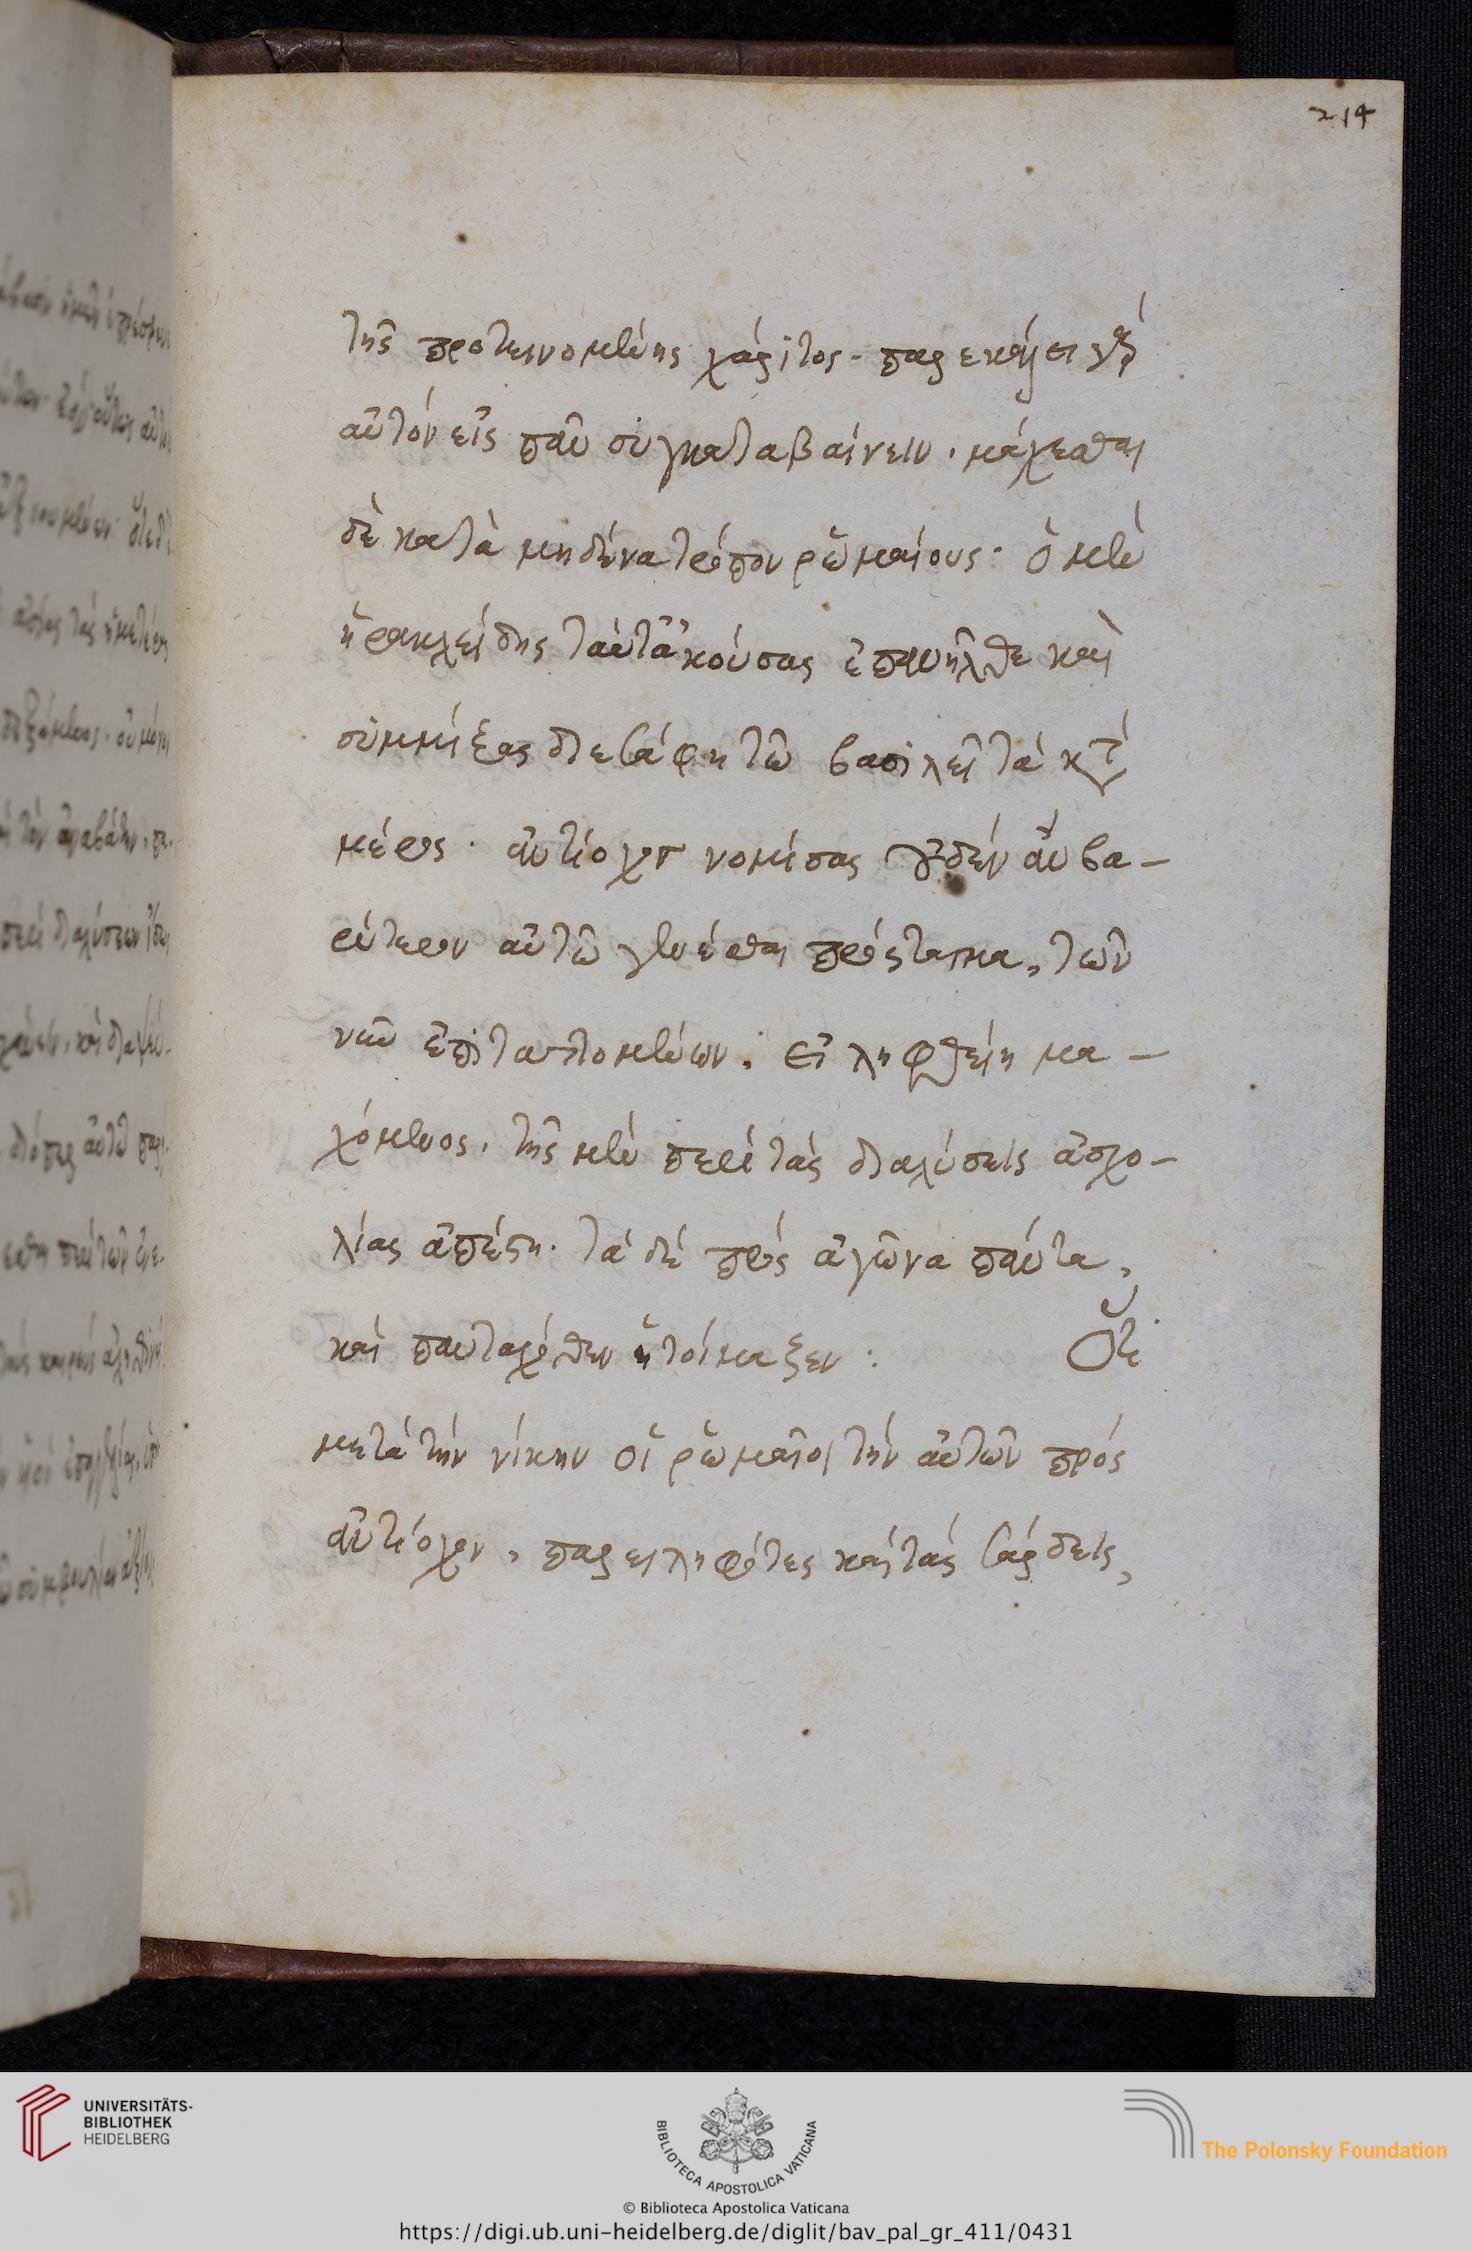 214
τῆς προτεινομένης χάριτος. παρεκάλει γὰρ
αὐτὸν εἰς πᾶν συγκαταβαίνειν, μάχεσθαι
δὲ κατὰ μηδένα τρόπον ῥωμαίους. ὁ μὲν
ἡρακλείδης ταῦτ' ἀκούσας ἐπανῆλθε καὶ
συμμίξας διεσάφη τῶ βασιλεῖ τὰ κατὰ
μέρος. ἀντίοχος νομίσας οὐδὲν ἂν βα-
ρύτερον αὐτῶ γενέσθαι πρόσταγμα, τῶν
νῦν ἐπιταττομένων, εἰ ληφθείη μα-
χόμενος, τῆς μὲν περὶ τὰς διαλύσεις ἀσχο-
λίας ἀπέστη. τὰ δὲ πρὸς ἀγῶνα πάντα,
καὶ πανταχόθεν ἡτοίμαζεν: Ὅτι
μετὰ τὴν νίκην οἱ ῥωμαῖοι τὴν αὐτῶν πρὸς
ἀντίοχον, παρειληφότες καὶ τὰς σάρδεις,
UNIVERSITÄTS-
BIBLIOTHEK
HEIDELBERG
BIBLIOTECA APOSTOLICA VATICANA
The Polonsky Foundation
© Biblioteca Apostolica Vaticana
https://digi.ub.uni-heidelberg.de/diglit/bav_pal_gr_411/0431